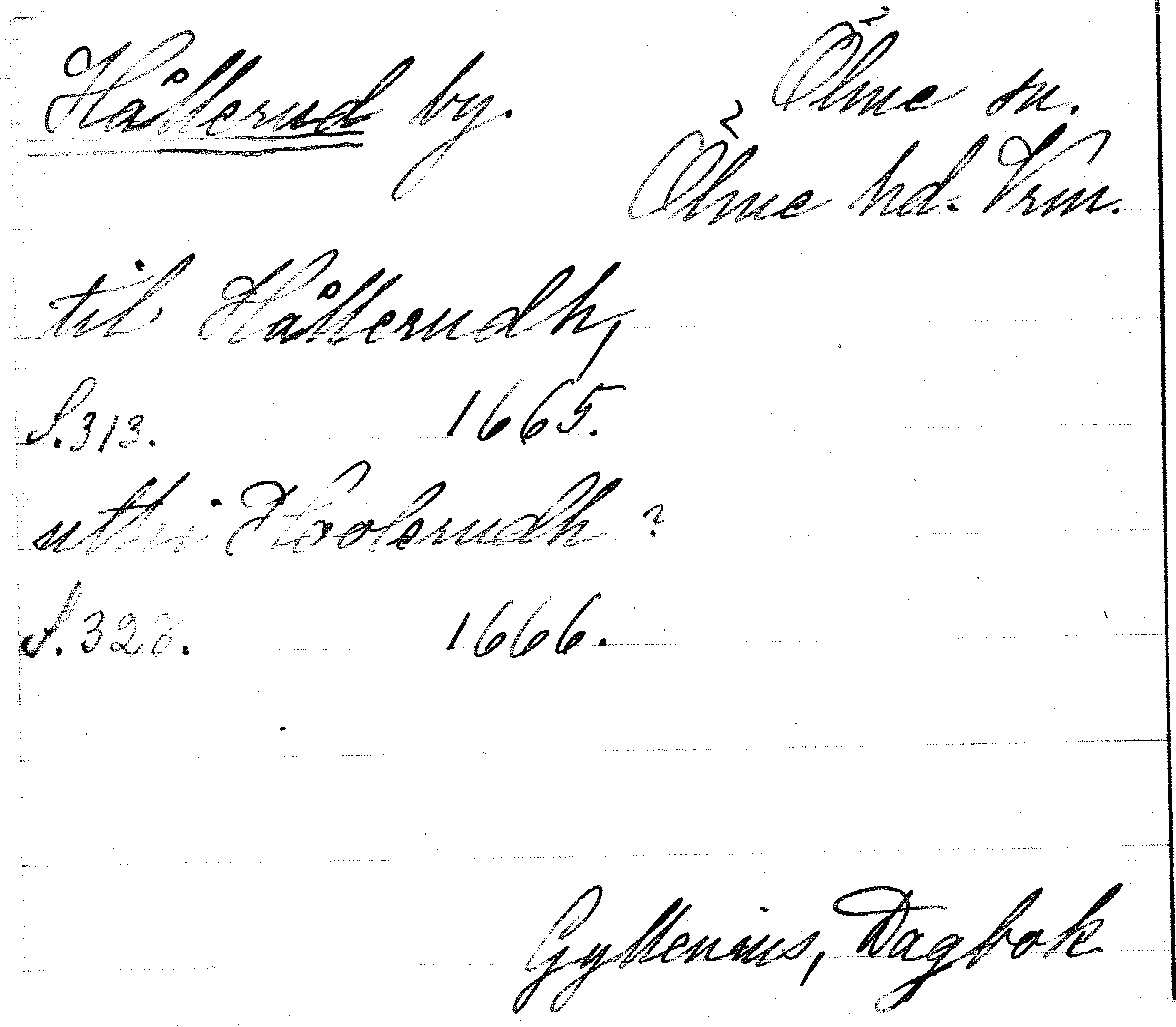 Hållerud by.
Ölme sn.
Ölme hd. Vrm.
til Hållerudh,
S.313. 1665.
uthi Hoolerudh ?
S.328. 1666.
Gyllenius, Dagbok